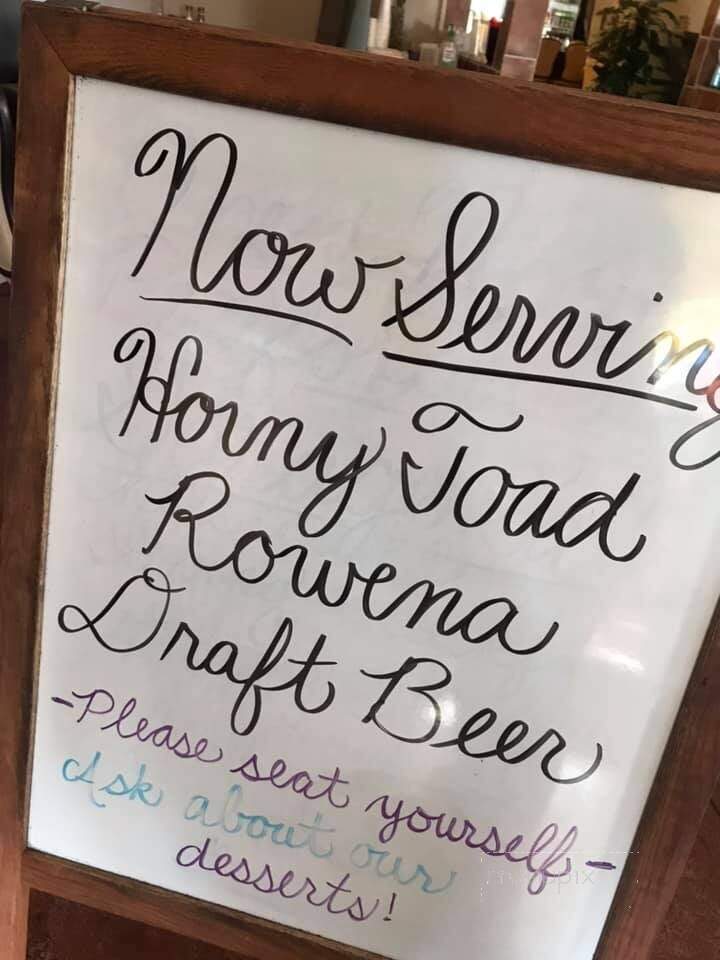 Now Serving
Horny Toad
Rowena
Draft Beer
-Please seat yourself-
Ask about our
desserts!